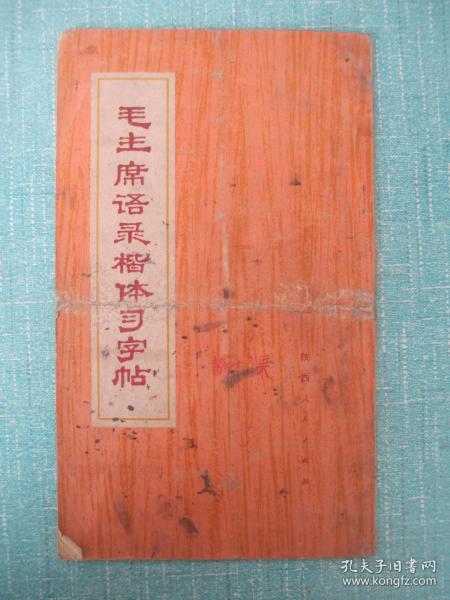 毛主席语录楷体习字帖
陕西人民出版社
孔夫子旧书网
www.kongfz.com